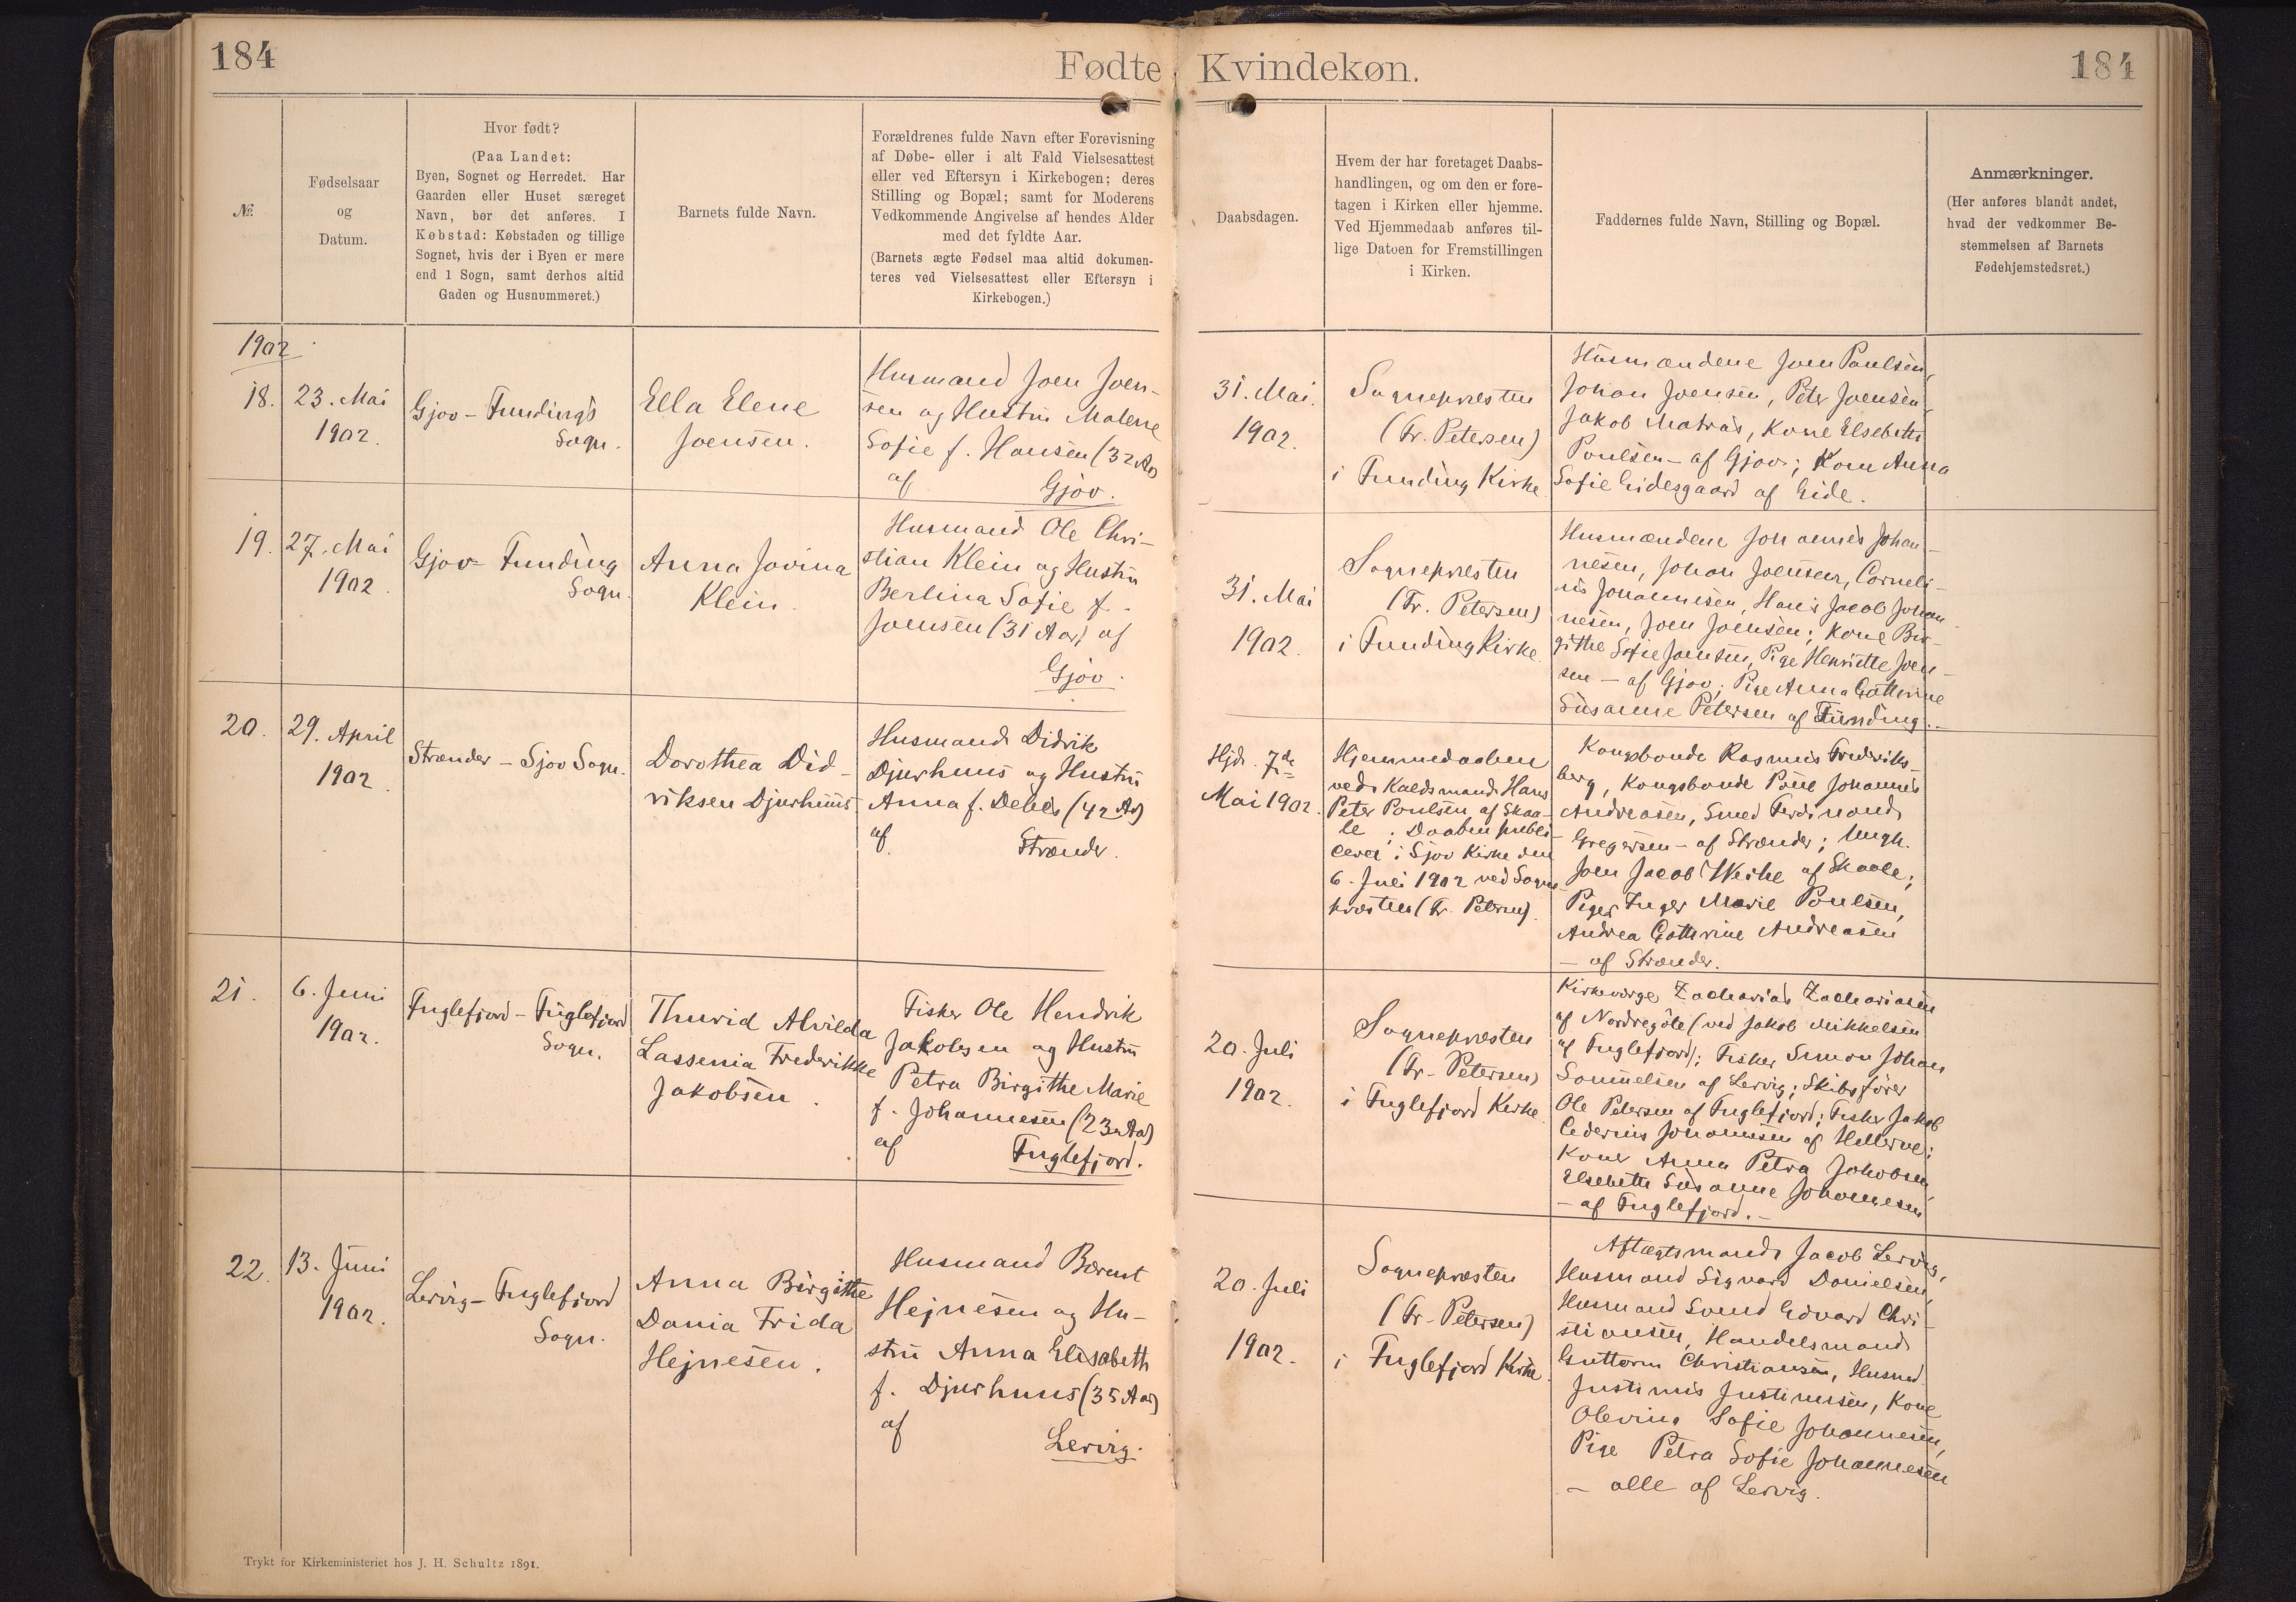 184
Fødte Kvindekøn.
184
№
Fødselsaar
og
Datum.
Hvor født?
(Paa Landet:
Byen, Sognet og Herredet. Har
Gaarden eller Huset særeget
Navn, bør det anføres. I
Købstad: Købstaden og tillige
Sognet, hvis der i Byen er mere
end 1 Sogn, samt derhos altid
Gaden og Husnummeret.)
Barnets fulde Navn.
Forældrenes fulde Navn efter Forevisning
af Døbe- eller i alt Fald Vielsesattest
eller ved Eftersyn i Kirkebogen; deres
Stilling og Bopæl; samt for Moderens
Vedkommende Angivelse af hendes Alder
med det fyldte Aar.
(Barnets ægte Fødsel maa altid dokumen-
teres ved Vielsesattest eller Eftersyn i
Kirkebogen.)
Daabsdagen.
Hvem der har foretaget Daabs-
handlingen, og om den er fore-
tagen i Kirken eller hjemme.
Ved Hjemmedaab anføres til-
lige Datoen for Fremstillingen
i Kirken.
Faddernes fulde Navn, Stilling og Bopæl.
Anmærkninger.
(Her anføres blandt andet,
hvad der vedkommer Be-
stemmelsen af Barnets
Fødehjemstedsret.)
1902
18.
23. Mai
1902.
Gjov - Fundings
Sogn.
Ella Elene
Joensen.
Husmand Joen Joen-
sen og Hustru Malene
Sofie f. Hansen (32 Ar)
af
Gjov.
31. Mai.
1902.
Sognepresten
(Fr. Petersen)
i Funding Kirke
Husmændene Joen Paulsen,
Johan Joensen, Peter Joensen,
Jakob Matras, Kone Elsebeth
Poulsen - af Gjov; Kone Anna
Sofie Eidesgaard af Eide.
19.
27. Mai
1902
Gjov - Funding
Sogn.
Anna Jovina
Klein.
Husmand Ole Chri-
stian Klein og Hustru
Berlina Sofie f.
Joensen (31 Aar) af
Gjov.
31. Mai
1902.
Sognepresten
(Fr. Petersen)
i Funding Kirke.
Husmændene Johannes Johan-
nesen, Johan Joensen, Corneli-
us Johannesen, Hans Jacob Johan
nesen, Joen Joensen; Kone Bir-
githe Sofie Joensen, Pige Henriette Joen-
sen - af Gjov; Pige Anna Cathrine
Susanne Petersen af Funding.-
20.
29. April
1902
Strænder - Sjov Sogn.
Dorothea Did-
riksen Djurhuus
Husmand Didrik
Djurhuus og Hustru
Anna f. Debes (42 Ar)
af
Strænder.
Hjd. 7de
Mai 1902.
Hjemmedaaben
ved Kaldsmand Hans
Peter Poulsen af Skaa-
le; Daaben publi-
ceret i Sjov Kirke den
6. Juli 1902 ved Sogne-
præsten (Fr. Petersen).
Kongsbonde Rasmus Frederiks-
berg, Kongsbonde Poul Johannes
Andreasen, Smed Ferdinand
Gregersen - af Strænder; Ungk.
Joen Jacob Weihe af Skaale;
Piger Inger Marie Poulsen,
Andrea Cathrine Andreasen
- af Strænder.
21.
6. Juni
1902.
Fuglefjord - Fuglefjord
Sogn.
Thurid Alvilda
Lassenia Frederikke
Jakobsen.
Fisker Ole Hendrik
Jakobsen og Hustru
Petra Birgithe Marie
f. Johannesen (23 Aar)
af
Fuglefjord.
20. Juli
1902.
Sognepresten
(Fr. Petersen)
i Fuglefjord Kirke.
Kirkeværge Zacharias Zachariasen
af Nordregöte (ved Jakob Mikkelsen
af Fuglefjord); Fisker Simon Johan
Samuelsen af Lervig; Skibsfører
Ole Petersen af Fuglefjord; Fisker Jakob
Johannesen af Hellerne;
Koner Anna Petra Jakobsen,
Elsebeth Susanne Johannesen
- af Fuglefjord.-
22.
13. Juni
1902.
Lervig - Fuglefjord
Sogn.
Anna Birgithe
Dania Frida
Hejnesen.
Husmand Berent
Hejnesen og Hu-
stru Anna Elisabeth
f. Djurhuus (35 Aar)
af
Lervig.
20. Juli
1902.
Sognepresten
(Fr. Petersen)
i Fuglefjord Kirke.
Aftægtsmand Jacob Lervig,
Husmand Sigvard Danielsen,
Husmand Svend Edvard Chri-
stiansen, Handelsmand
Guttorm Christiansen, Husmd.
Justinus Justinussen, Kone
Olevina Sofie Johannesen,
Pige Petra Sofie Johannesen
- alle af Lervig.
Trykt for Kirkeministeriet hos J. H. Schultz 1891.